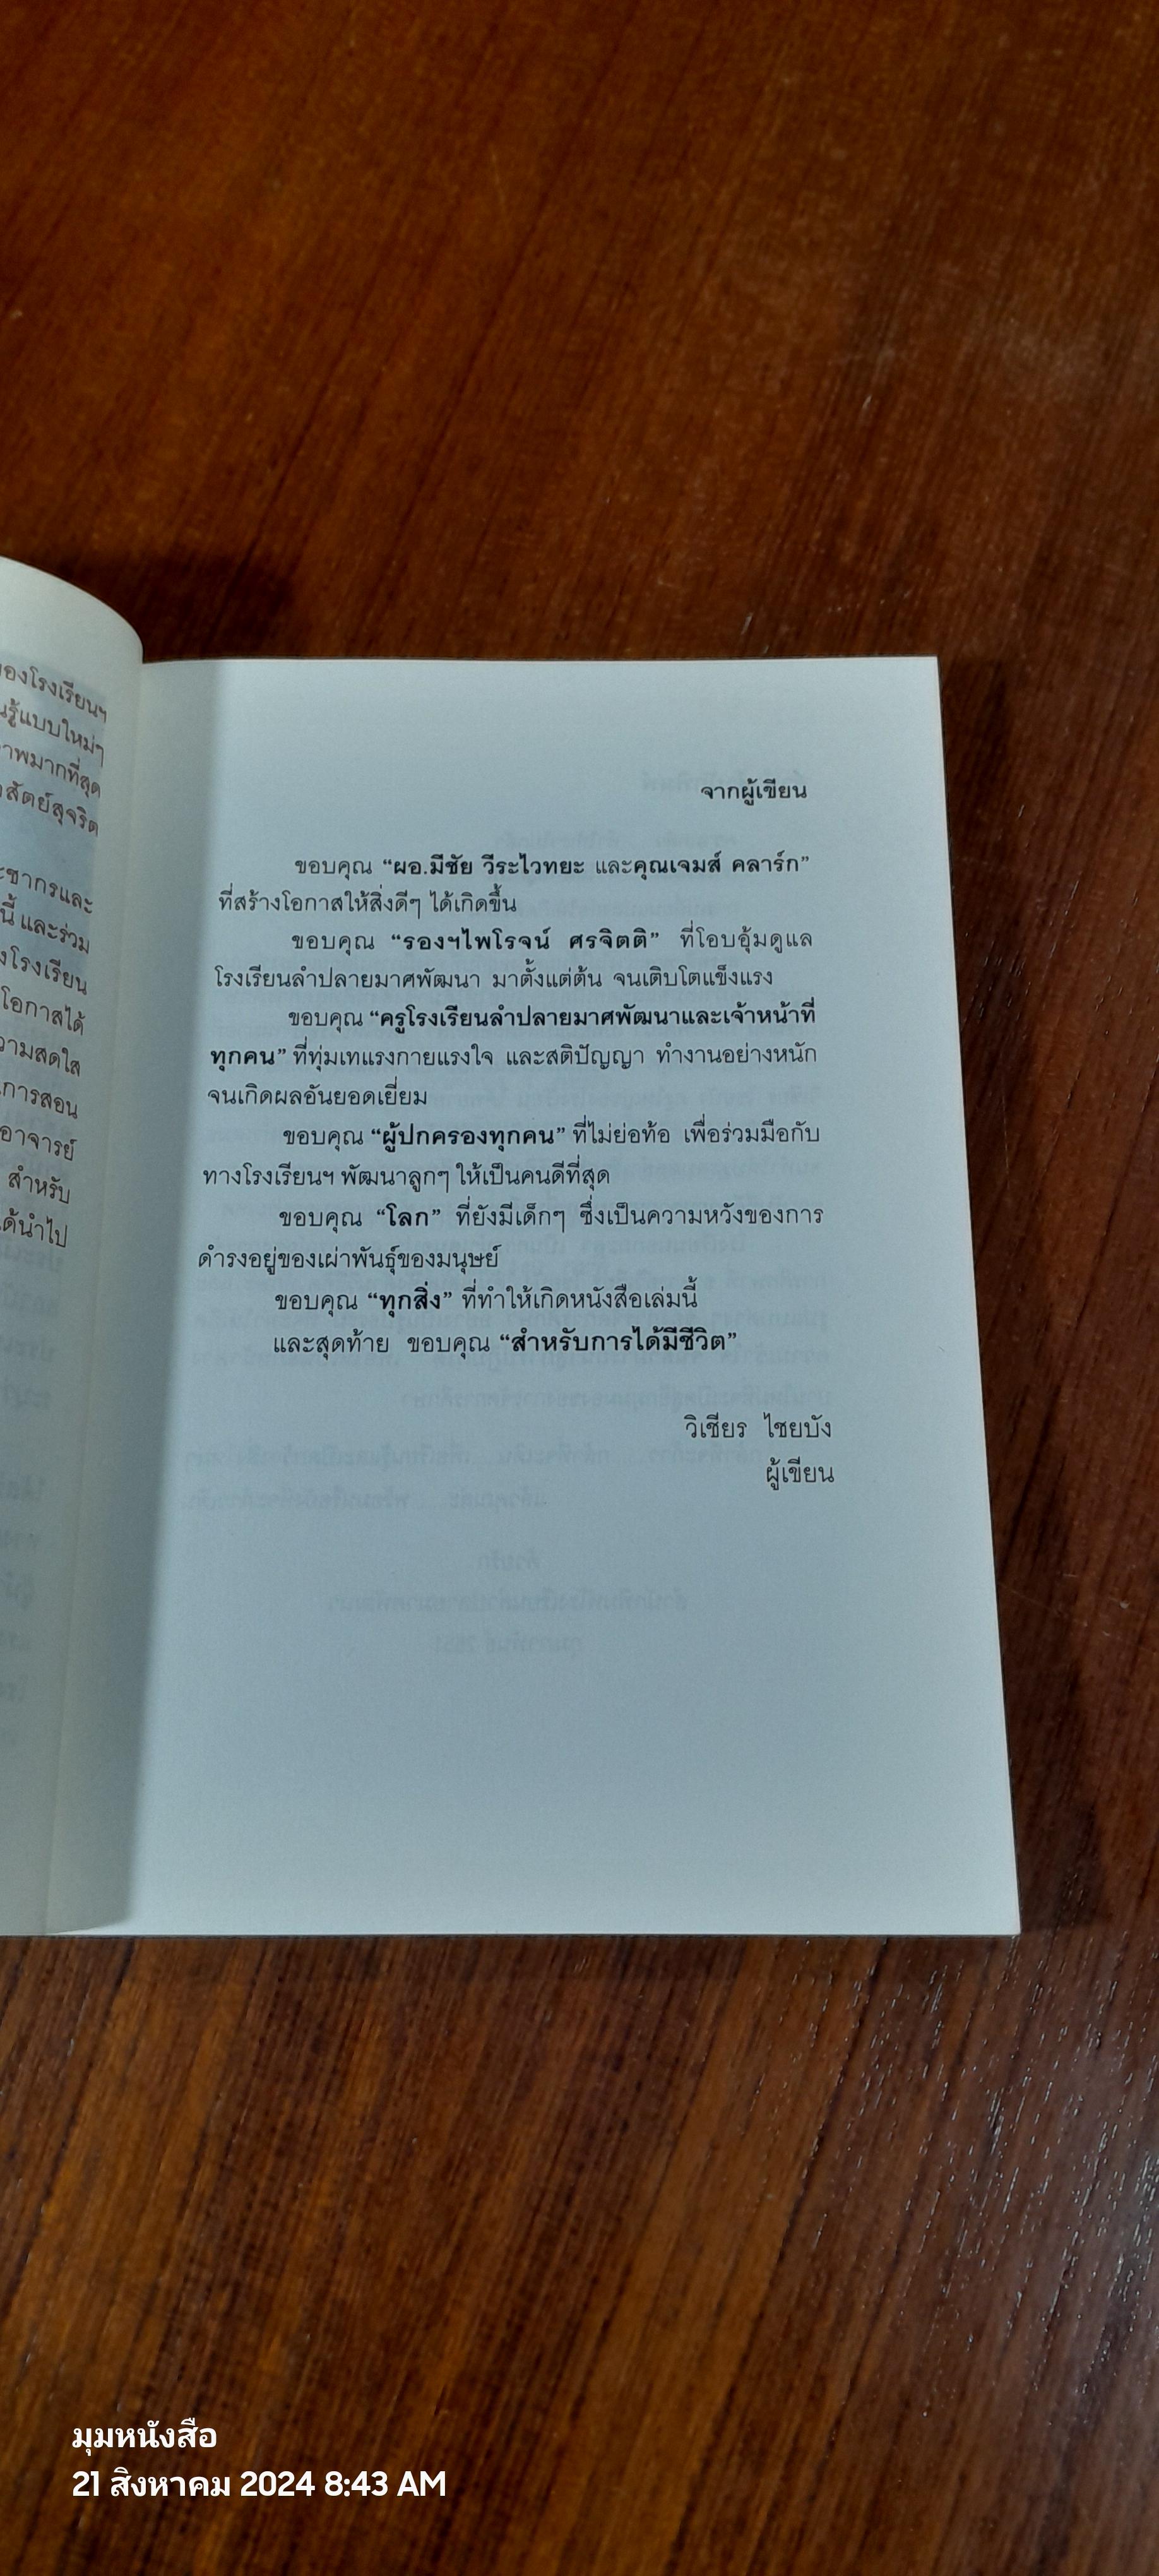 องโรงเรียนฯ
นรู้แบบใหม่ๆ
าพมากที่สุด
สัตย์สุจริต
ะชากรและ
นี้ และร่วม
งโรงเรียน
โอกาสได้
วามสดใส
การสอน
อาจารย์
สำหรับ
ด้นำไป
จากผู้เขียน
ขอบคุณ “ผอ.มีชัย วีระไวทยะ และคุณเจมส์ คลาร์ก”
ที่สร้างโอกาสให้สิ่งดีๆ ได้เกิดขึ้น
ขอบคุณ “รองฯไพโรจน์ ศรจิตติ” ที่โอบอุ้มดูแล
โรงเรียนลำปลายมาศพัฒนา มาตั้งแต่ต้น จนเติบโตแข็งแรง
ขอบคุณ “ครูโรงเรียนลำปลายมาศพัฒนาและเจ้าหน้าที่
ทุกคน” ที่ทุ่มเทแรงกายแรงใจ และสติปัญญา ทำงานอย่างหนัก
จนเกิดผลอันยอดเยี่ยม
ขอบคุณ “ผู้ปกครองทุกคน” ที่ไม่ย่อท้อ เพื่อร่วมมือกับ
ทางโรงเรียนฯ พัฒนาลูกๆ ให้เป็นคนดีที่สุด
ขอบคุณ “โลก” ที่ยังมีเด็กๆ ซึ่งเป็นความหวังของการ
ดำรงอยู่ของเผ่าพันธุ์ของมนุษย์
ขอบคุณ “ทุกสิ่ง” ที่ทำให้เกิดหนังสือเล่มนี้
และสุดท้าย ขอบคุณ “สำหรับการได้มีชีวิต”
วิเชียร ไชยบัง
ผู้เขียน
มุมหนังสือ
21 สิงหาคม 2024 8:43 AM